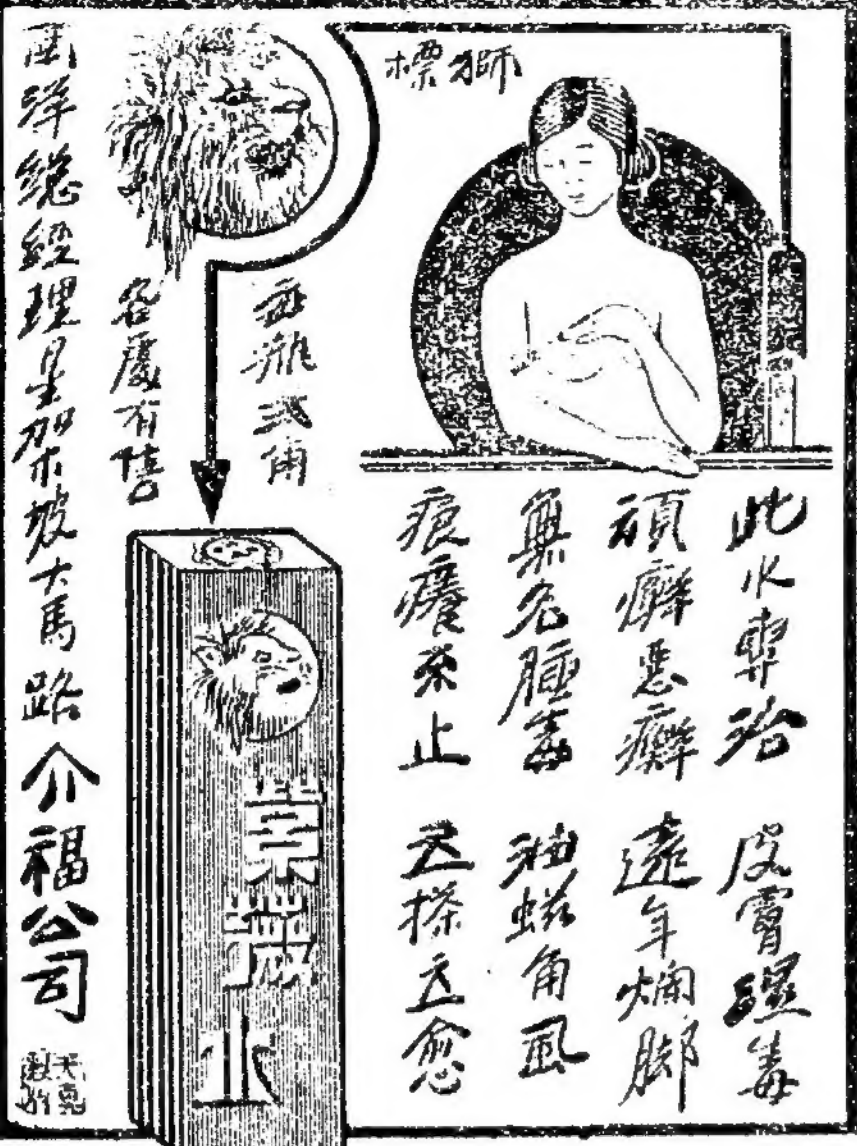 獅標
此水專治 皮膚濕毒
頑癬惡癬 遠年爛脚
無名腫毒 油螆角風
痕癢不止 立搽立愈
每 弍角
各處有售
止
南洋總經理星架坡大馬路介福公司